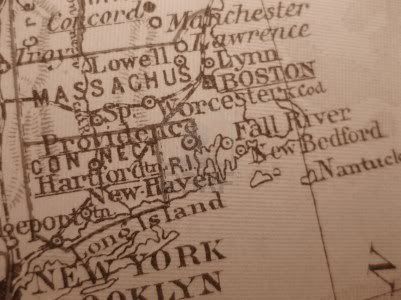 Concord
Manchester
Lawrence
Troy
Lowell
Lynn
MASSACHUS
BOSTON
Sp.
Worcester
K.Cod
Providence
Fall River
CONNECT
R.I.
New Bedford
Hartford
Nantuck
New Haven
gepoptqtn
Long Island
NEW YORK
OOKLYN